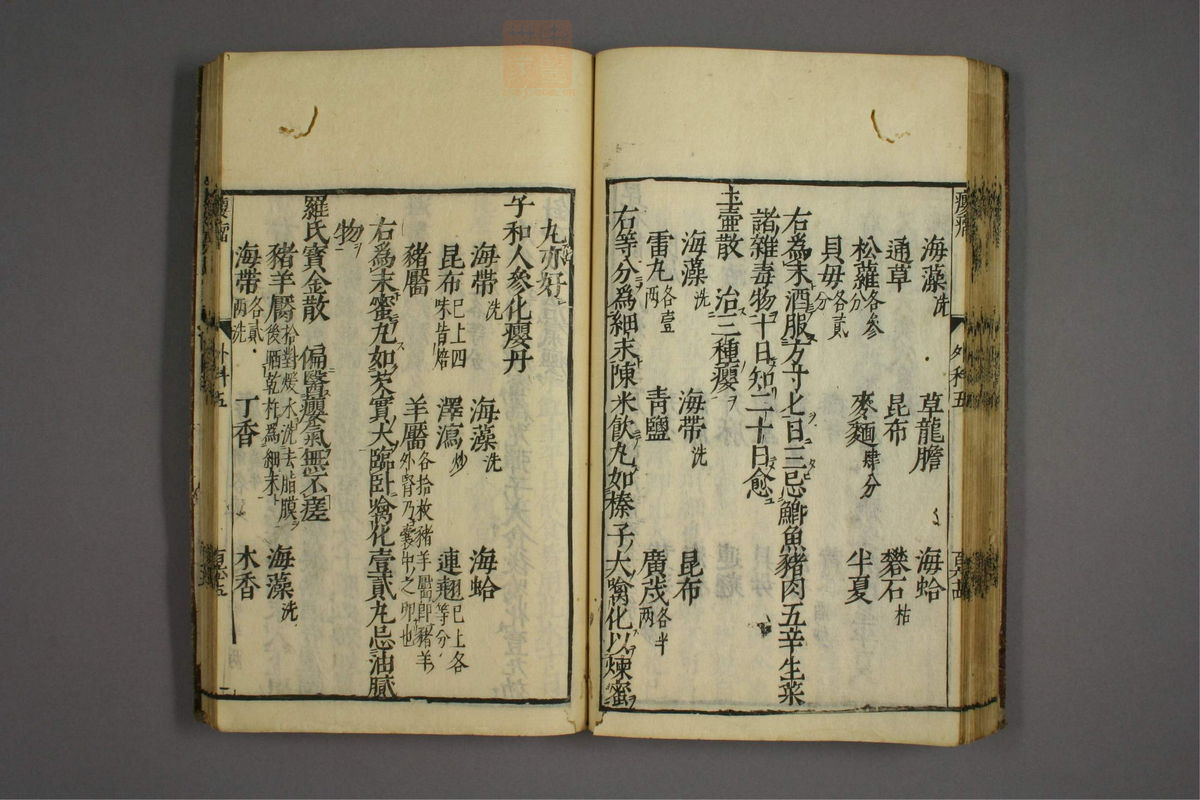 癭瘤
外科五
海藻洗 草龍膽 海蛤
通草 昆布 礬石枯
松蘿各叁分 麥麵肆分 半夏
貝毋各貳分
右爲末酒服方寸匕日三忌鯽魚豬肉五辛生菜
諸雜毒物十日知二十日愈
玉壺散 治三種癭
海藻洗 海帶洗 昆布
雷丸各壹兩 青鹽 廣茂各半兩
右等分爲細末陳米飮丸如榛子大噙化以煉蜜
丸亦好
子和人參化癭丹
海帶洗 海藻洗 海蛤
昆布已上四味皆焙 澤瀉炒 連翹已上各等分
豬靨 羊靨各拾枚豬羊靨即豬羊外腎乃囊中之卵也
右爲末蜜丸如芡實大臨卧噙化壹貳丸忌油膩
物
羅氏寶金散 偏醫癭氣無不瘥
豬羊靨拾對煖水洗去脂膜後晒乾杵爲細末 海藻洗
海帶各貳兩洗 丁香 木香
癭瘤
外科五